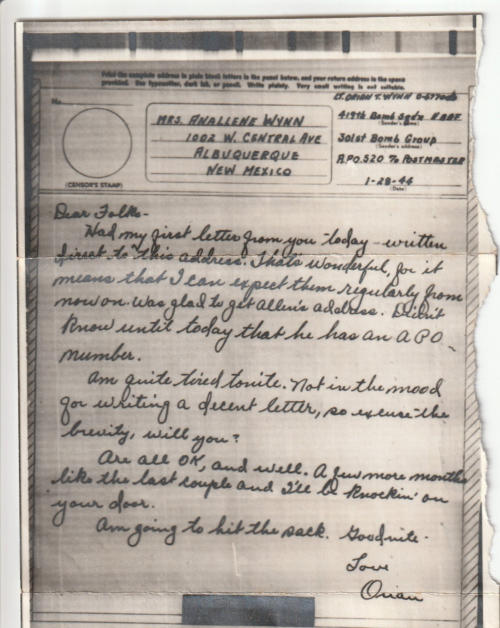 Print the complete address in plain block letters in the panel below, and your return address in the space
provided. Use typewriter, dark ink, or pencil. Write plainly. Very small writing is not suitable.
No.
(CENSOR'S STAMP)
MRS. ANALLENE WYNN
1002 W. CENTRAL AVE
ALBUQUERQUE
NEW MEXICO
LT. ORIAN T. WYNN
419th Bomb Sqd'n
(Sender's name)
301st Bomb Group
(Sender's address)
A.P.O. 520 % POSTMASTER
1-28-44
(Date)
Dear Folks-
Had my first letter from you today - written
direct to this address. That's wonderful, for it
means that I can expect them regularly from
now on. Was glad to get Allen's address. Didn't
know until today that he has an APO
number.
Am quite tired tonite. Not in the mood
for writing a decent letter, so excuse the
brevity, will you?
Are all OK, and well. A few more months
like the last couple and I'll be knockin' on
your door.
Am going to hit the sack. Goodnite -
Love
Orian